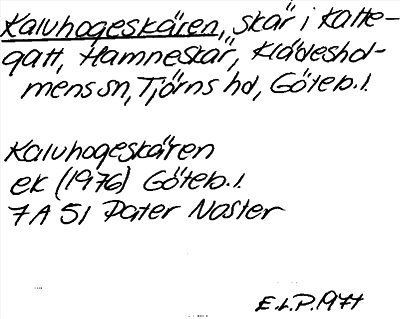 Kalvhogeskären, skär i Katte-
gatt, Hamneskär, Klädeshol-
mens sn, Tjörns hd, Göteb.l.
Kalvhogeskären
ek (1976) Göteb.l.
7A 51 Pater Noster
E.L.P. 1977